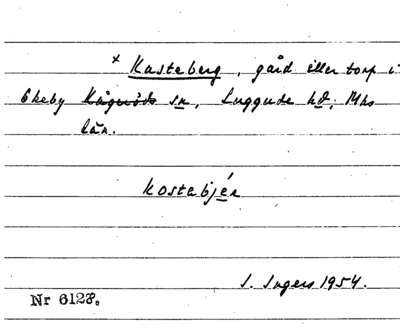 x Kasteberg, gård eller torp i
Ekeby Kågeröds sn, Luggude hd, Mhs
län.
kostabjér
I. Ingers 1954.
Nr 6128.